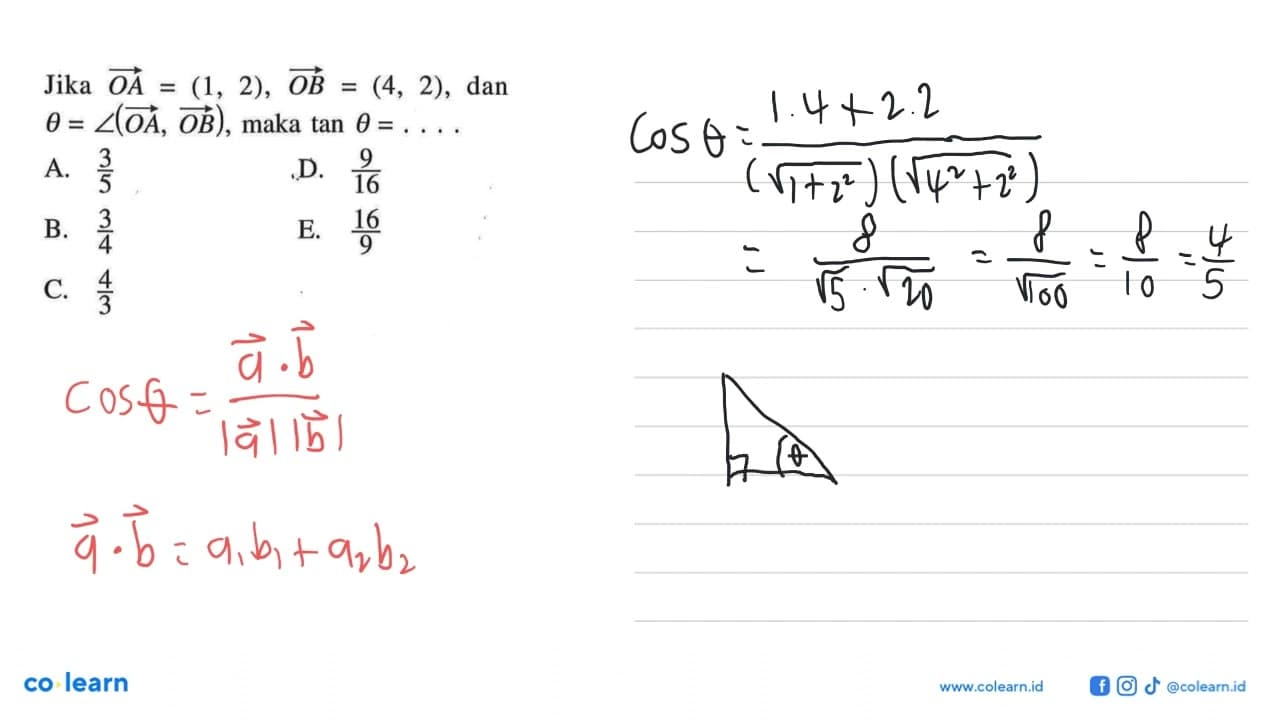 Jika $\overrightarrow{OA}$ = (1, 2), $\overrightarrow{OB}$ = (4, 2), dan
θ = ∠($\overrightarrow{OA}$, $\overrightarrow{OB}$), maka tan θ = . . . .
A. $\frac{3}{5}$ D. $\frac{9}{16}$
B. $\frac{3}{4}$ E. $\frac{16}{9}$
C. $\frac{4}{3}$
$\cos θ = \frac{\vec{a} \cdot \vec{b}}{|\vec{a}| |\vec{b}|}$
$\vec{a} \cdot \vec{b} = a_1 b_1 + a_2 b_2$
$\cos θ = \frac{1.4 + 2.2}{(\sqrt{1+2^2})(\sqrt{4^2+2^2})}$
$= \frac{8}{\sqrt{5} . \sqrt{20}} = \frac{8}{\sqrt{100}} = \frac{8}{10} = \frac{4}{5}$
θ
co learn
www.colearn.id
@colearn.id